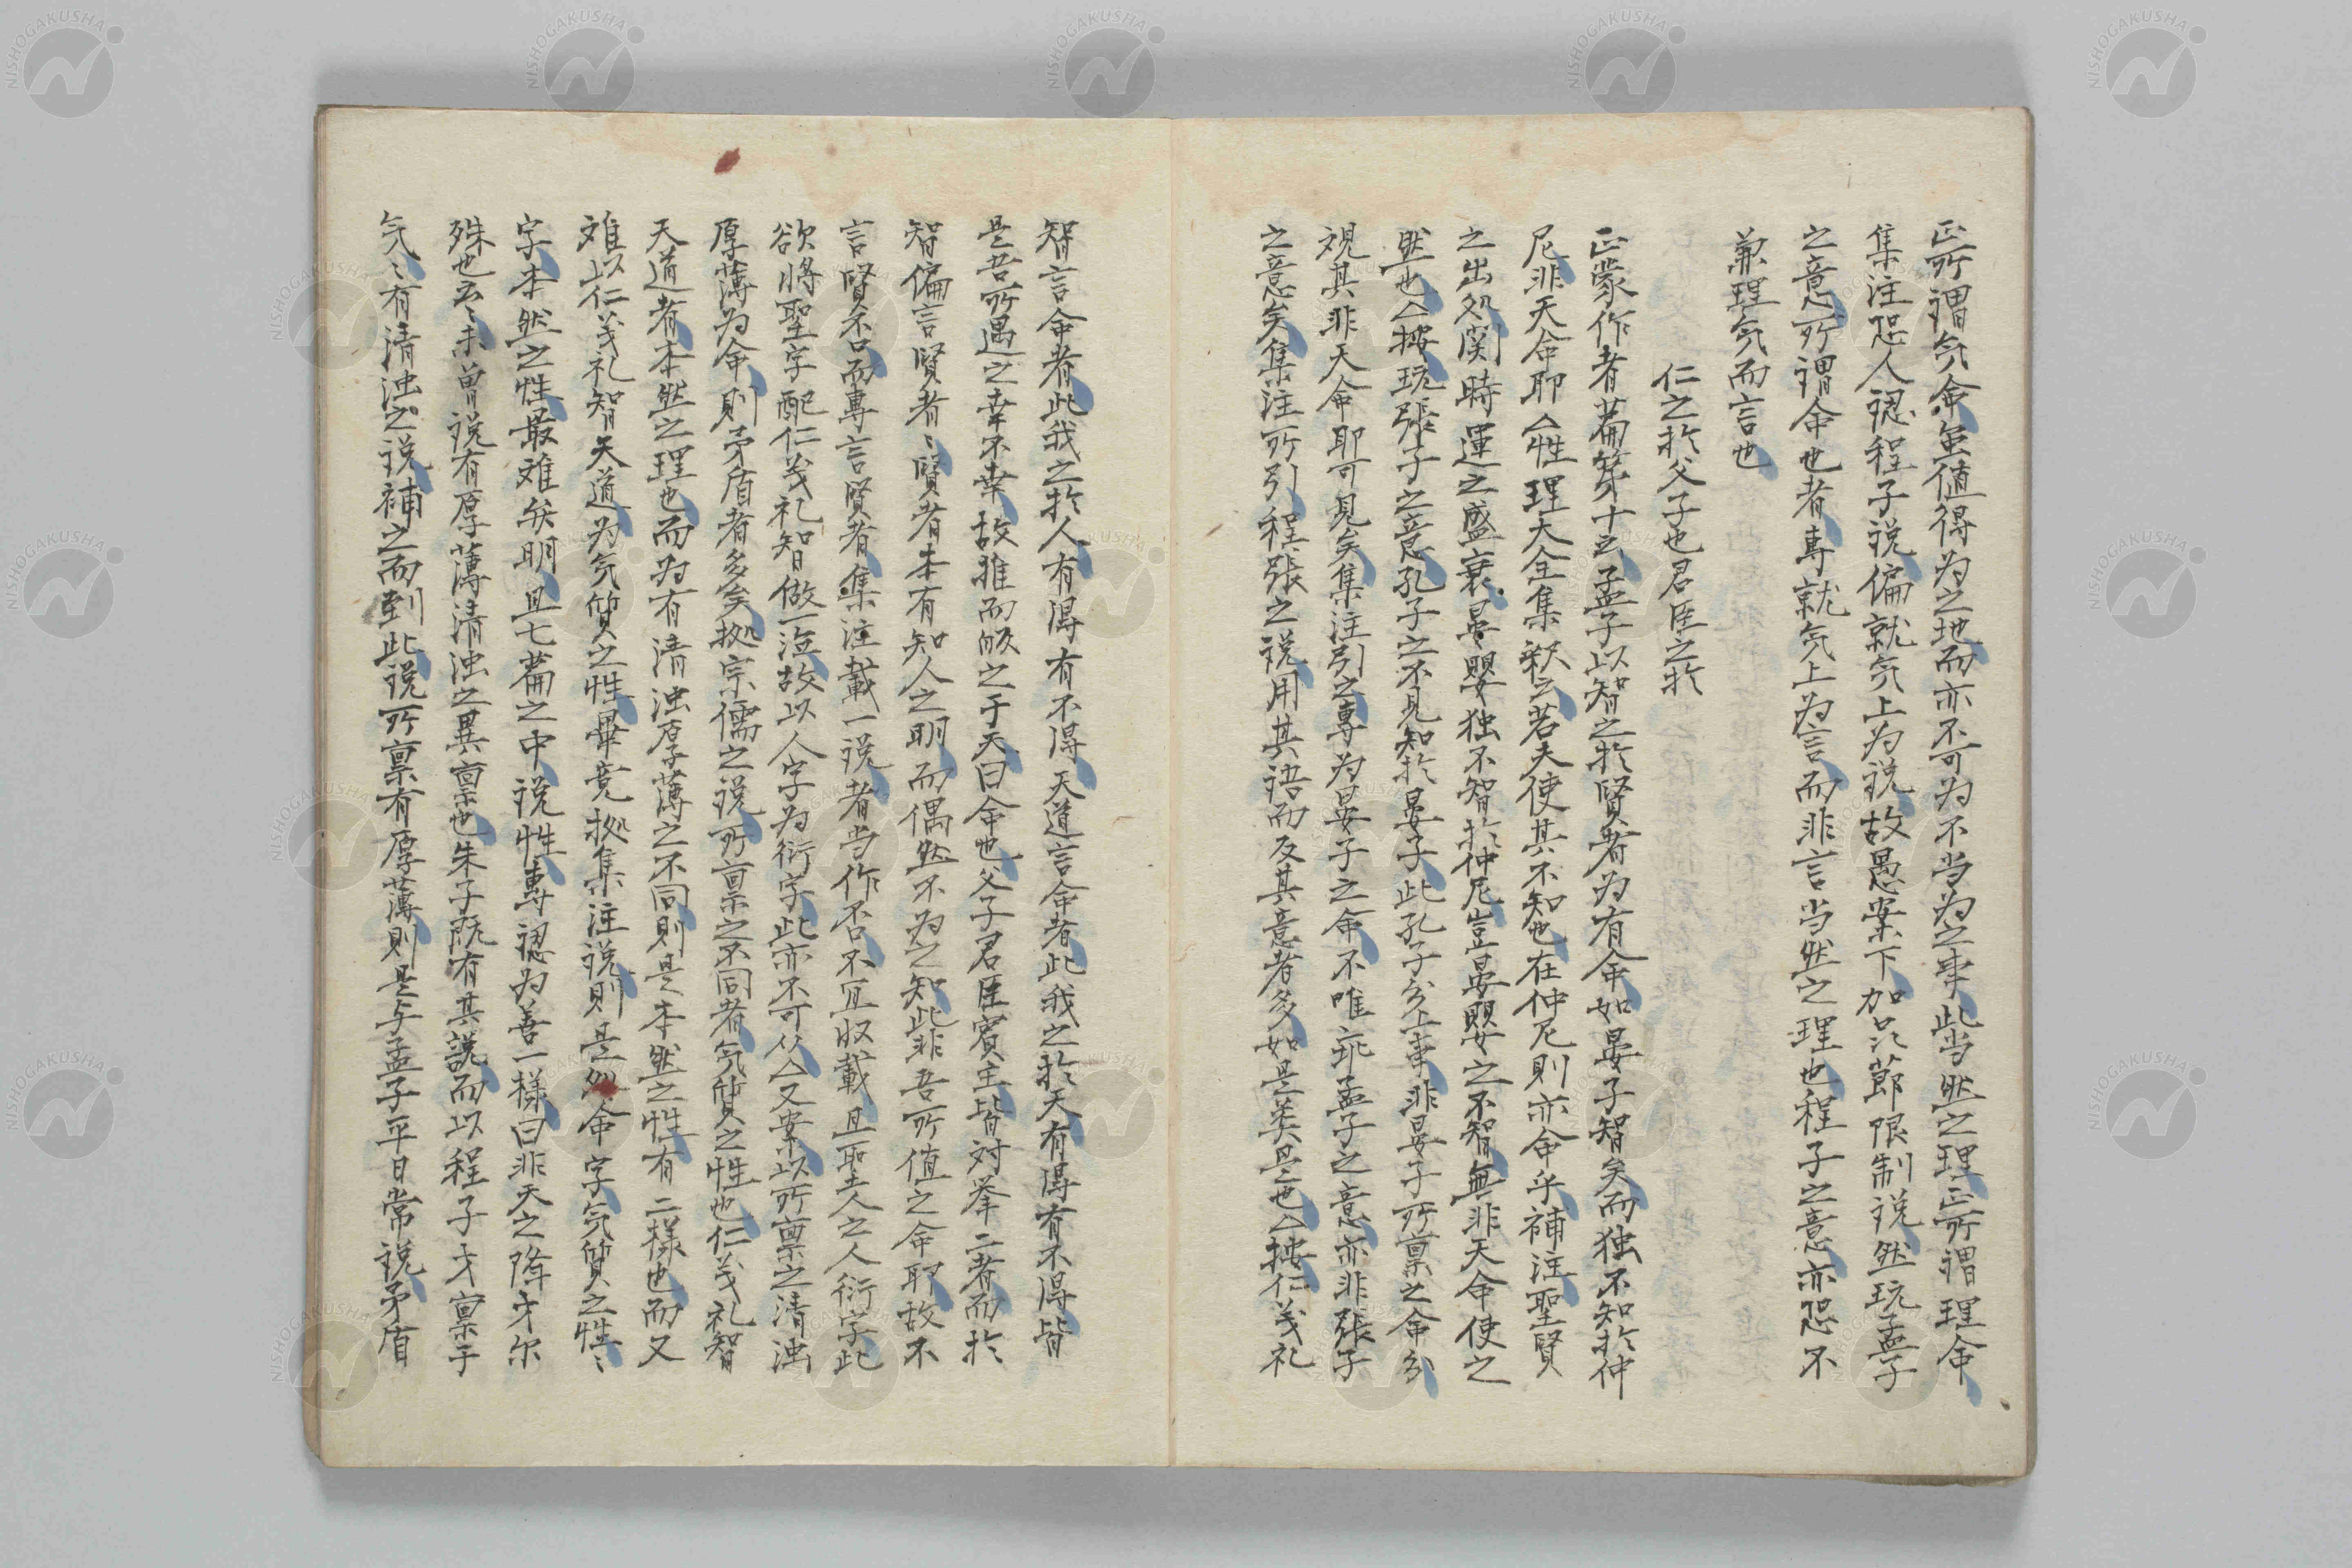 正所謂気命虽値得為之地而亦不可為不当為之事此当然之理正所謂理命
集注恐人認程子説偏就気上為説故愚案下加品節限制説然玩孟子
之意所謂命也者專就気上為言而非言当然之理也程子之意亦恐不
兼理気而言也
仁之於父子也君臣之於
正蒙作者篇第十云孟子以智之於賢者為有命如晏子智矣而独不知於仲
尼非天命耶△性理大全集釈云若夫使其不知也在仲尼則亦命乎補注聖賢
之出処関時運之盛衰晏嬰独不智於仲尼豈晏嬰之不智無非天命使之
然也△按玩張子之意孔子之不見知於晏子此孔子分上事非晏子所禀之命分
現其非天命耶可見矣集注引之專為晏子之命不唯非孟子之意亦非張子
之意矣集注所引程張之説用其語而反其意者多如是类是也△按仁義礼
智言命者此我之於人有得有不得天道言命者此我之於天有得有不得皆
是吾所遇之幸不幸故推而皈之于天曰命也父子君臣賓主皆対挙二者而於
智偏言賢者〻賢者本有知人之明而偶然不為之知此非吾所値之命耶故不
言賢否而專言賢者集注載一説者当作否不宜収載且聖人之人衍字此
欲将聖字配仁義礼智做一泣故以人字為衍字此亦不可从△又案以所禀之清濁
厚薄為命則矛盾者多矣拠宗儒之説所禀之不同者気質之性也仁義礼智
天道者本然之理也而為有清濁厚薄之不同則是本然之性有二様也而又
难以仁義礼智天道為気質之性畢竟拠集注説則是命字気質之性〻
字本然之性最难矣明且七篇之中説性專認為善一様曰非天之降才尔
殊也云〻未曽説有厚薄清濁之異禀也朱子既有其説而以程子才禀于
気〻有清濁之説補之而到此説所禀有厚薄則是与孟子平日常説矛盾